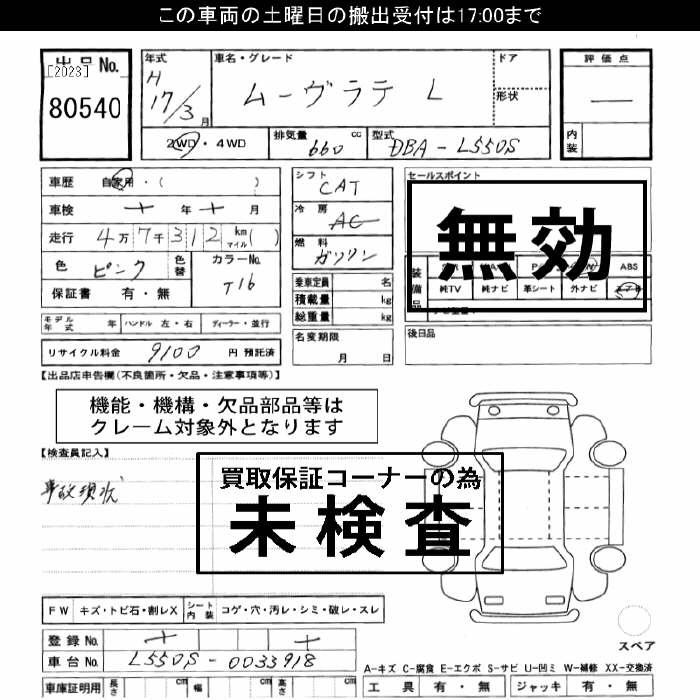 この車両の土曜日の搬出受付は17:00まで
出品No.
[2023]
80540
年式
H
17/3月
車名・グレード
ムーヴラテ L
ドア
形状
評価点
―
内装
2WD・4WD
排気量 660 cc
型式 DBA-L550S
車歴 自家用・( )
車検 年 月
走行 4万7千312 km マイル( )
色 ピンク 色替
カラーNo. T16
保証書 有・無
シフト
CAT
冷房
AC
燃料
ガソリン
乗車定員 名
積載量 kg
総重量 kg
セールスポイント
無効
装備品
ABS
純TV 純ナビ 革シート 外ナビ
後日品
モデル年式 年 ハンドル 左・右 ディーラー・並行
リサイクル料金 9100 円 預託済
名変期限
月 日
【出品店申告欄(不良箇所・欠品・注意事項等)】
機能・機構・欠品部品等は
クレーム対象外となります
【検査員記入】
事故現状
買取保証コーナーの為
未検査
FW キズ・トビ石・割レX シート内装 コゲ・穴・汚レ・シミ・破レ・スレ
登録No.
車台No. L550S-0033918
車庫証明用 長さ cm 幅 cm 高さ cm
スペア
A-キズ C-腐食 E-エクボ S-サビ U-凹ミ W-補修 XX-交換済
工具 有・無 ジャッキ 有・無